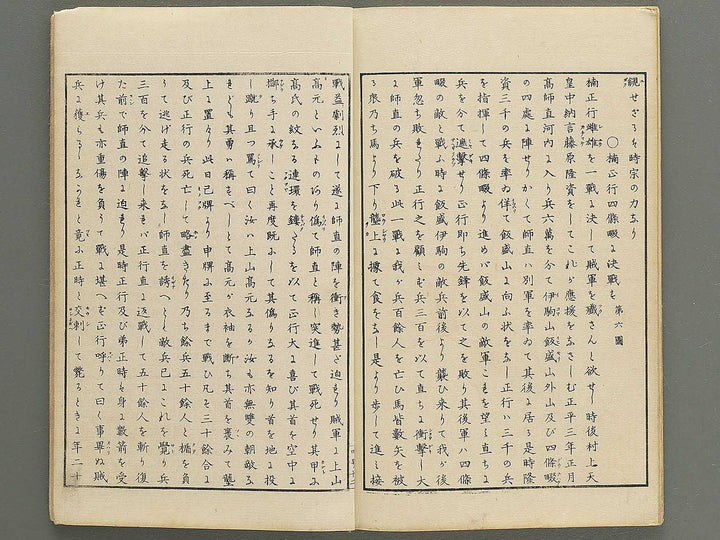 観せざるハ時宗の力なり
〇楠正行四條畷に決戦す 第六圖
楠正行雌雄を一戦に決して賊軍を殱さんと欲せし時後村上天
皇中納言藤原隆資をしてこれが應援をなさしむ正平三年正月
高師直河内に入り兵六萬を分て伊駒山飯盛山外山及び四條畷
の四處に陣せりかくて師直ハ別軍を率ゐて其後に居る是時隆
資三千の兵を率ゐ佯て飯盛山に向ふ状をなし正行ハ三千の兵
を指揮して四條畷より進めバ飯盛山の敵軍これを望ミ直ちに
兵を分て邀撃せり正行即ち先鋒を以て之を敗り其後軍ハ四條
畷の敵と戦ふ時に飯盛伊駒の敵兵前後より襲ひ来りて我が後
軍忽ち敗もたり正行之を顧ミず兵三百を以て直ちに衝撃し大
に師直の兵を破る此一戦に我が兵百餘人を亡ひ馬皆數矢を被
る衆乃ち馬より下り壟上に據て食をなし是より歩して進ミ接
戦益劇烈にして遂に師直の陣を衝き勢甚ざ迫もり賊軍に上山
高元といふものあり偽て師直と稱し突進して戦死せり其甲に
高氏の紋なる連環を鏤たるを以て正行大に喜び其首を空中に
擲ち手に承しこと再度既にして其偽りなるを知り首を地に投
し蹴り且つ罵て曰く汝ハ上山高元なるか汝も亦無雙の朝敵な
れども其勇ハ稱すべしとて高元が衣袖を断ち其首を裹みて壟
上に置たり此日巳牌より申牌に至るまで戦ひ凡そ三十餘合に
及び正行の兵死亡して略盡きたり乃ち餘兵五十餘人と楯を負
りて逃げ走る状をなし師直を誘へども敵兵已にこれを覺り兵
三百を分て追撃し来もバ正行直に返戦して五十餘人を斬り復
た前で師直の陣に迫もり是時正行及び弟正時も身に數箭を受
け其兵も亦重傷を負うて戦に堪へず正行呼りて曰く事畢ぬ賊
兵に獲らるゝなかれと竟に正時と交刺して斃るときに年二十